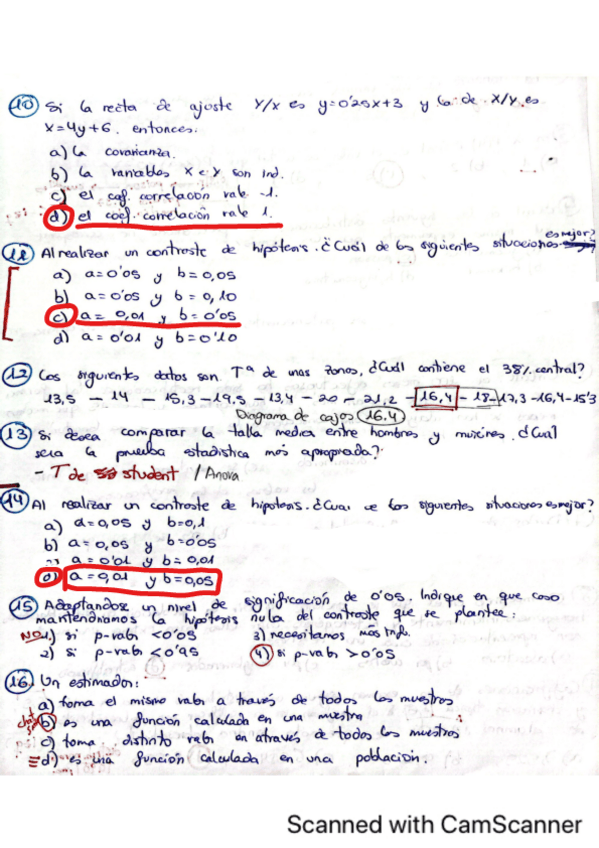 10 Si la recta de ajuste Y/x es y=0'25x+3 y la de X/y es
x=4y+6. entonces:
a) la covarianza.
b) la variables X e Y son ind.
c) el coef. correlación vale -1.
d) el coef. correlación vale 1.
es mejor?
11 Al realizar un contraste de hipótesis. ¿Cuál de los siguientes situaciones
a) a=0'05 y b=0,05
b) a=0'05 y b=0,10
c) a= 0,01 y b=0'05
d) a=0'01 y b=0'10
12 Los siguientes datos son Tª de unas zonos, ¿Cuál contiene el 38% central?
13,5 - 14 - 15,3 - 19,5 - 13,4 - 20 - 21,2 - 16,4 - 18 - 17,3 - 16,4 - 15'3
Diagrama de cajas 16.4
13 Si desea comparar la talla media entre hombres y mujeres. ¿Cuál
seria la prueba estadística más apropiada?
- T de student / Anova
14 Al realizar un contraste de hipotesis. ¿Cual de los siguientes situaciones es mejor?
a) a=0,05 y b=0,1
b) a=0,05 y b=0'05
a=0'01 y b=0,01
d) a=0,01 y b=0,05
15 Adaptandose un nivel de significación de 0'05. Indique en que caso
mantendriamos la hipótesis nula del contraste que se plantee:
NO 1) si p-valor <0'05 3) necesitamos más info.
2) si p-valor <0'95 4) si p-valor >0'05
16 Un estimador:
a) toma el mismo valor a través de todos los muestros
b) es una función calculada en una muestra
c) toma distinto valor en através de todos los muestros
d) es una función calculada en una población.
Scanned with CamScanner